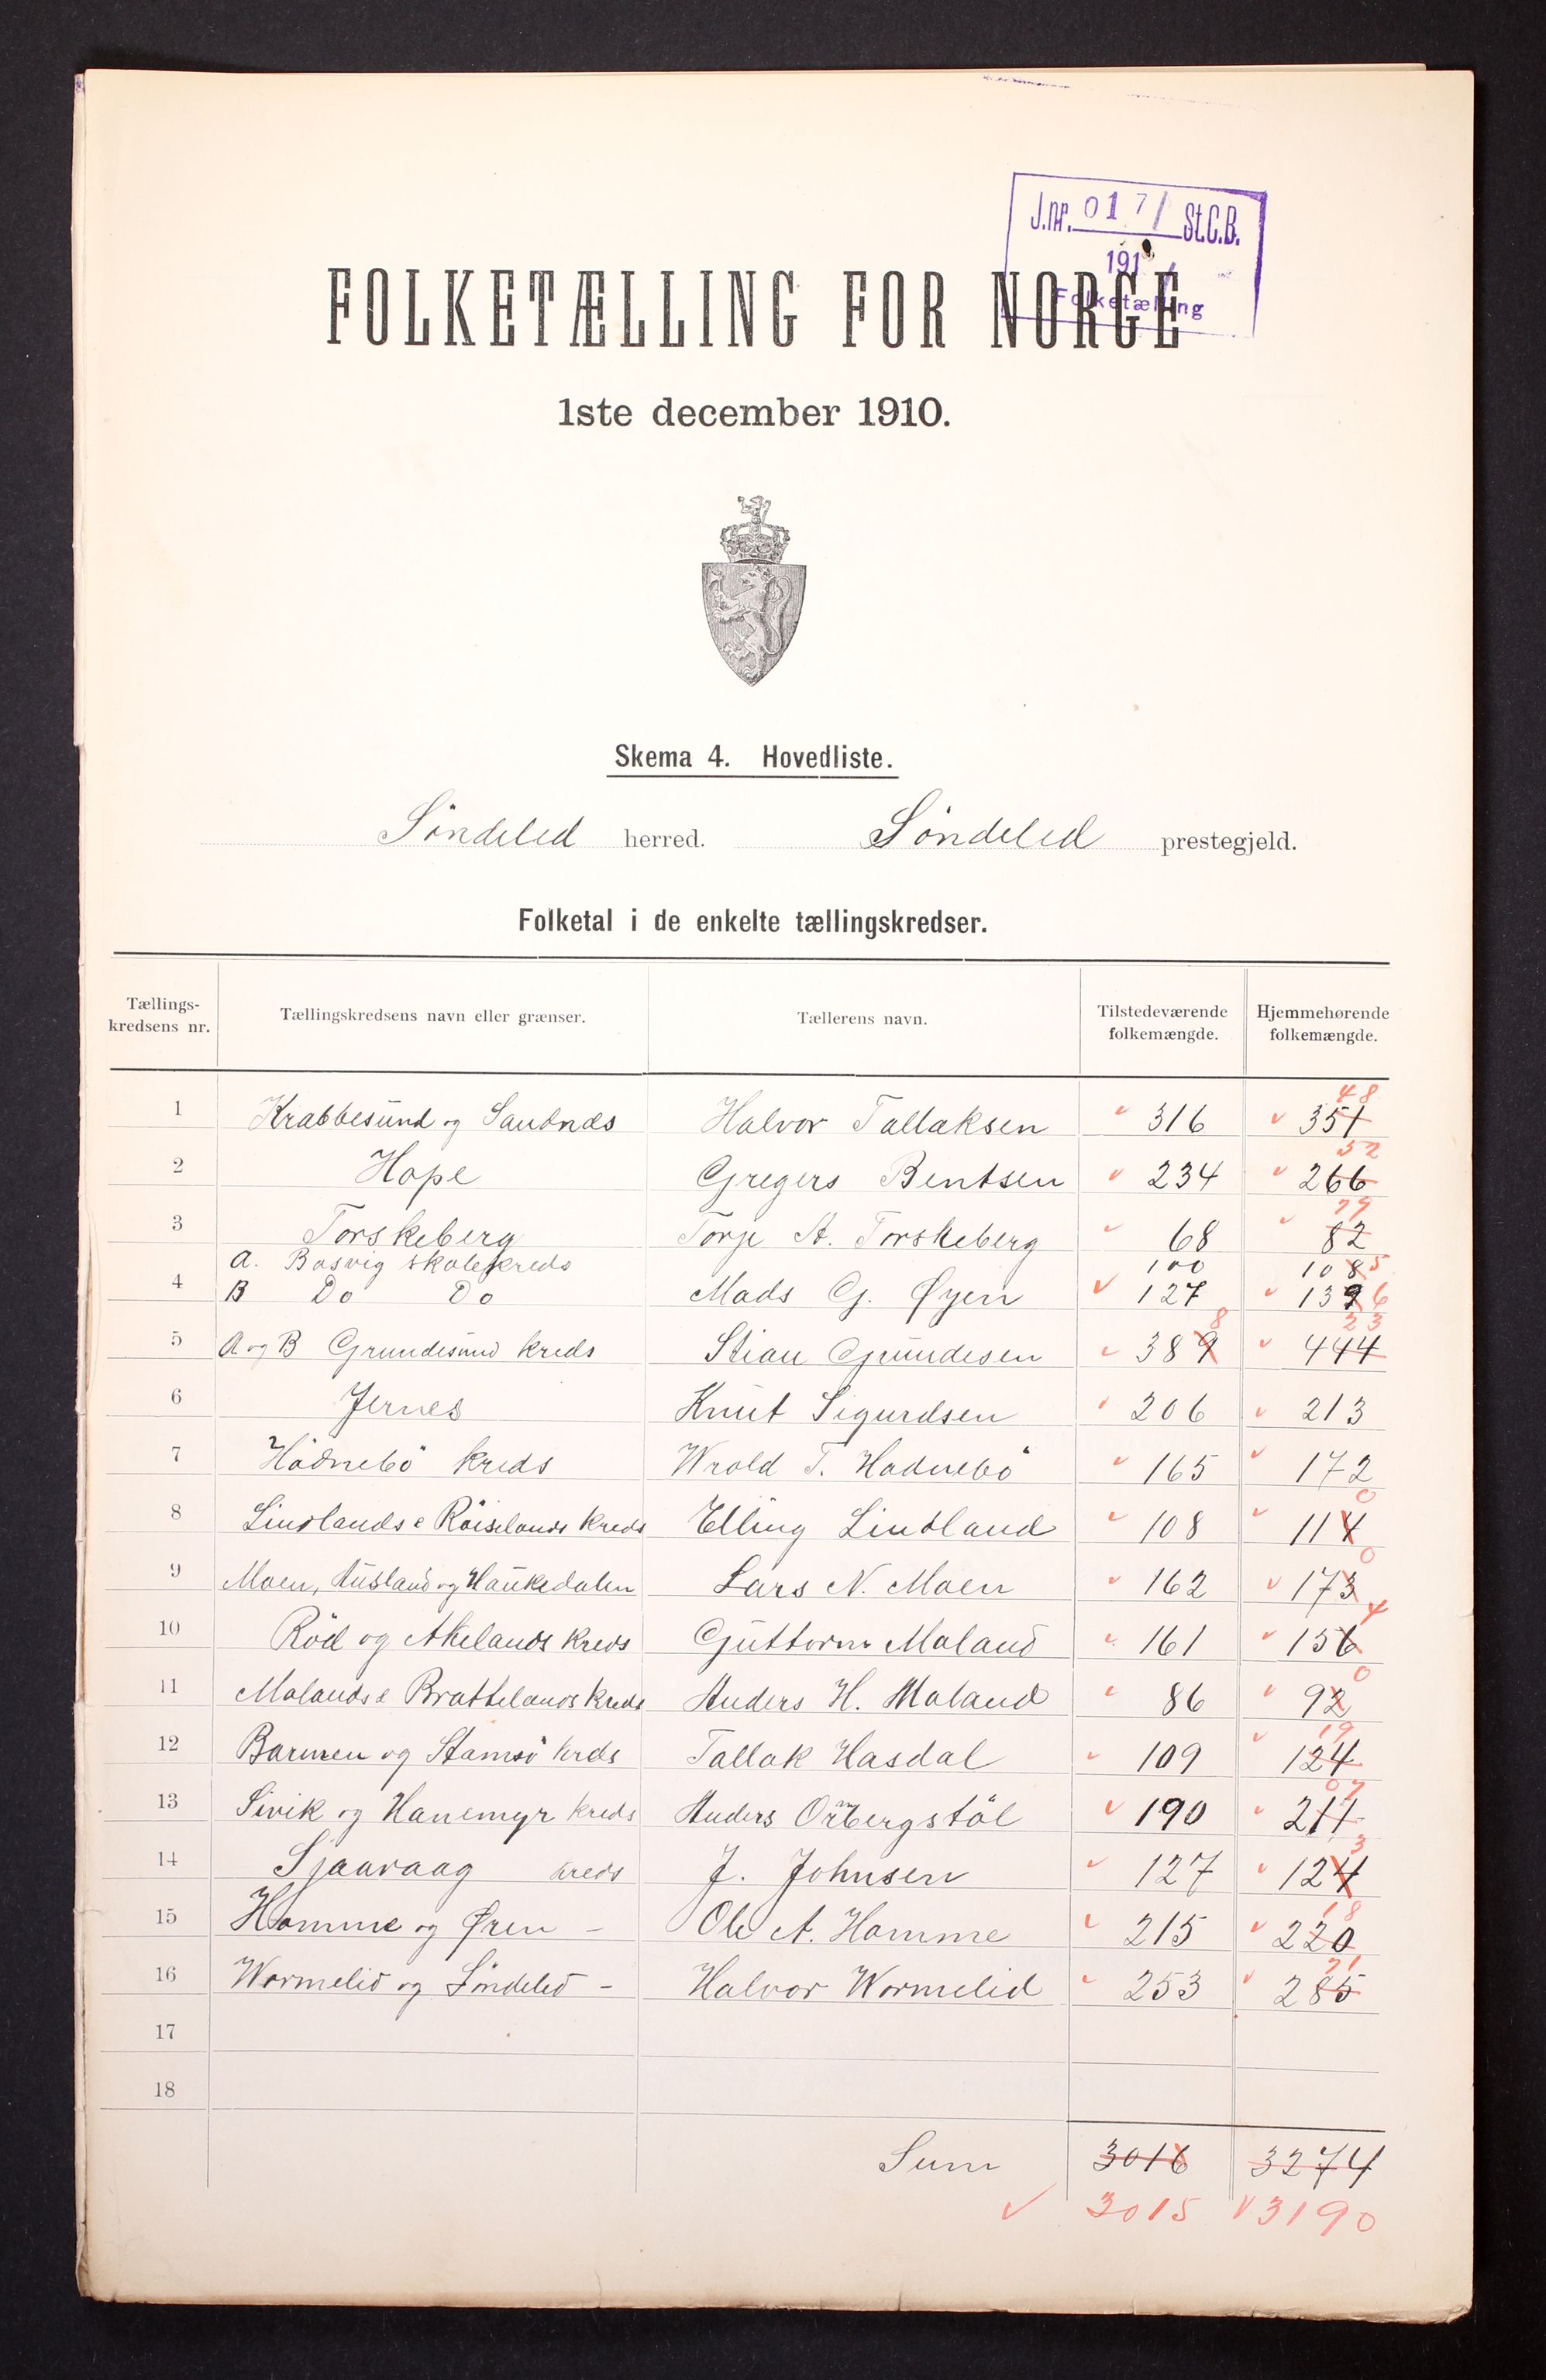 J.nr. 017/ St.C.B.
191
Folketælling
FOLKETÆLLING FOR NORGE
1ste december 1910.
Skema 4. Hovedliste.
Söndeled herred. Söndeled prestegjeld.
Folketal i de enkelte tællingskredser.
Tællings-kredsens nr. Tællingskredsens navn eller grænser. Tællerens navn. Tilstedeværende folkemængde. Hjemmehørende folkemængde.
48
1 Krabbesund og Sandnæs Halvor Tallaksen 316 351
52
2 Hope Gregers Bentsen 234 266
79
3 Torskeberg Torje A. Torskeberg 68 82
A. Bosvig skolekreds 100 108 5
4 B Do Do Mads G. Øyen 127 139 6
8 23
5 A og B Grundesund kreds Stian Grundesen 389 444
6 Jernes Knut Sigurdsen 206 213
7 Hödnebö kreds Wrold T. Hödnebö 165 172
0
8 Lindlands & Röiselands kreds Elling Lindland 108 114
0
9 Moen, Ausland og Haukedalen Lars N. Moen 162 173
4
10 Röd og Akelands kreds Guttorm Maland 161 156
0
11 Malands & Brattelands kreds Anders H. Maland 86 92
19
12 Barmen og Stamsö krds Tallak Hasdal 109 124
07
13 Sivik og Hanemyr kreds Anders Ormbergstöl 190 211
3
14 Sjaavaag kreds J. Johnsen 127 124
18
15 Homme og Øren - Ole A. Homme 215 220
71
16 Wormelid og Söndeled - Halvor Wormelid 253 285
17
18
Sum 3016 3274
3015 3190